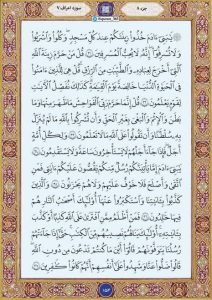 جزء ۸
سوره اعراف ۷
يَـٰبَنِىٓ ءَادَمَ خُذُوا۟ زِينَتَكُمْ عِندَ كُلِّ مَسْجِدٍ وَكُلُوا۟ وَٱشْرَبُوا۟
وَلَا تُسْرِفُوٓا۟ إِنَّهُۥ لَا يُحِبُّ ٱلْمُسْرِفِينَ ۝٣١ قُلْ مَنْ حَرَّمَ زِينَةَ ٱللَّهِ
ٱلَّتِىٓ أَخْرَجَ لِعِبَادِهِۦ وَٱلطَّيِّبَـٰتِ مِنَ ٱلرِّزْقِ قُلْ هِىَ لِلَّذِينَ ءَامَنُوا۟
فِى ٱلْحَيَوٰةِ ٱلدُّنْيَا خَالِصَةً يَوْمَ ٱلْقِيَـٰمَةِ كَذَٰلِكَ نُفَصِّلُ ٱلْـَٔايَـٰتِ
لِقَوْمٍ يَعْلَمُونَ ۝٣٢ قُلْ إِنَّمَا حَرَّمَ رَبِّىَ ٱلْفَوَٰحِشَ مَا ظَهَرَ مِنْهَا وَمَا
بَطَنَ وَٱلْإِثْمَ وَٱلْبَغْىَ بِغَيْرِ ٱلْحَقِّ وَأَن تُشْرِكُوا۟ بِٱللَّهِ مَا لَمْ يُنَزِّلْ
بِهِۦ سُلْطَـٰنًا وَأَن تَقُولُوا۟ عَلَى ٱللَّهِ مَا لَا تَعْلَمُونَ ۝٣٣ وَلِكُلِّ أُمَّةٍ
أَجَلٌ فَإِذَا جَآءَ أَجَلُهُمْ لَا يَسْتَأْخِرُونَ سَاعَةً وَلَا يَسْتَقْدِمُونَ ۝٣٤
يَـٰبَنِىٓ ءَادَمَ إِمَّا يَأْتِيَنَّكُمْ رُسُلٌ مِّنكُمْ يَقُصُّونَ عَلَيْكُمْ ءَايَـٰتِى فَمَنِ
ٱتَّقَىٰ وَأَصْلَحَ فَلَا خَوْفٌ عَلَيْهِمْ وَلَا هُمْ يَحْزَنُونَ ۝٣٥ وَٱلَّذِينَ
كَذَّبُوا۟ بِـَٔايَـٰتِنَا وَٱسْتَكْبَرُوا۟ عَنْهَآ أُو۟لَـٰٓئِكَ أَصْحَـٰبُ ٱلنَّارِ هُمْ
فِيهَا خَـٰلِدُونَ ۝٣٦ فَمَنْ أَظْلَمُ مِمَّنِ ٱفْتَرَىٰ عَلَى ٱللَّهِ كَذِبًا أَوْ كَذَّبَ
بِـَٔايَـٰتِهِۦٓ أُو۟لَـٰٓئِكَ يَنَالُهُمْ نَصِيبُهُم مِّنَ ٱلْكِتَـٰبِ حَتَّىٰٓ إِذَا جَآءَتْهُمْ
رُسُلُنَا يَتَوَفَّوْنَهُمْ قَالُوٓا۟ أَيْنَ مَا كُنتُمْ تَدْعُونَ مِن دُونِ ٱللَّهِ
قَالُوا۟ ضَلُّوا۟ عَنَّا وَشَهِدُوا۟ عَلَىٰٓ أَنفُسِهِمْ أَنَّهُمْ كَانُوا۟ كَـٰفِرِينَ ۝٣٧
۱۵۴